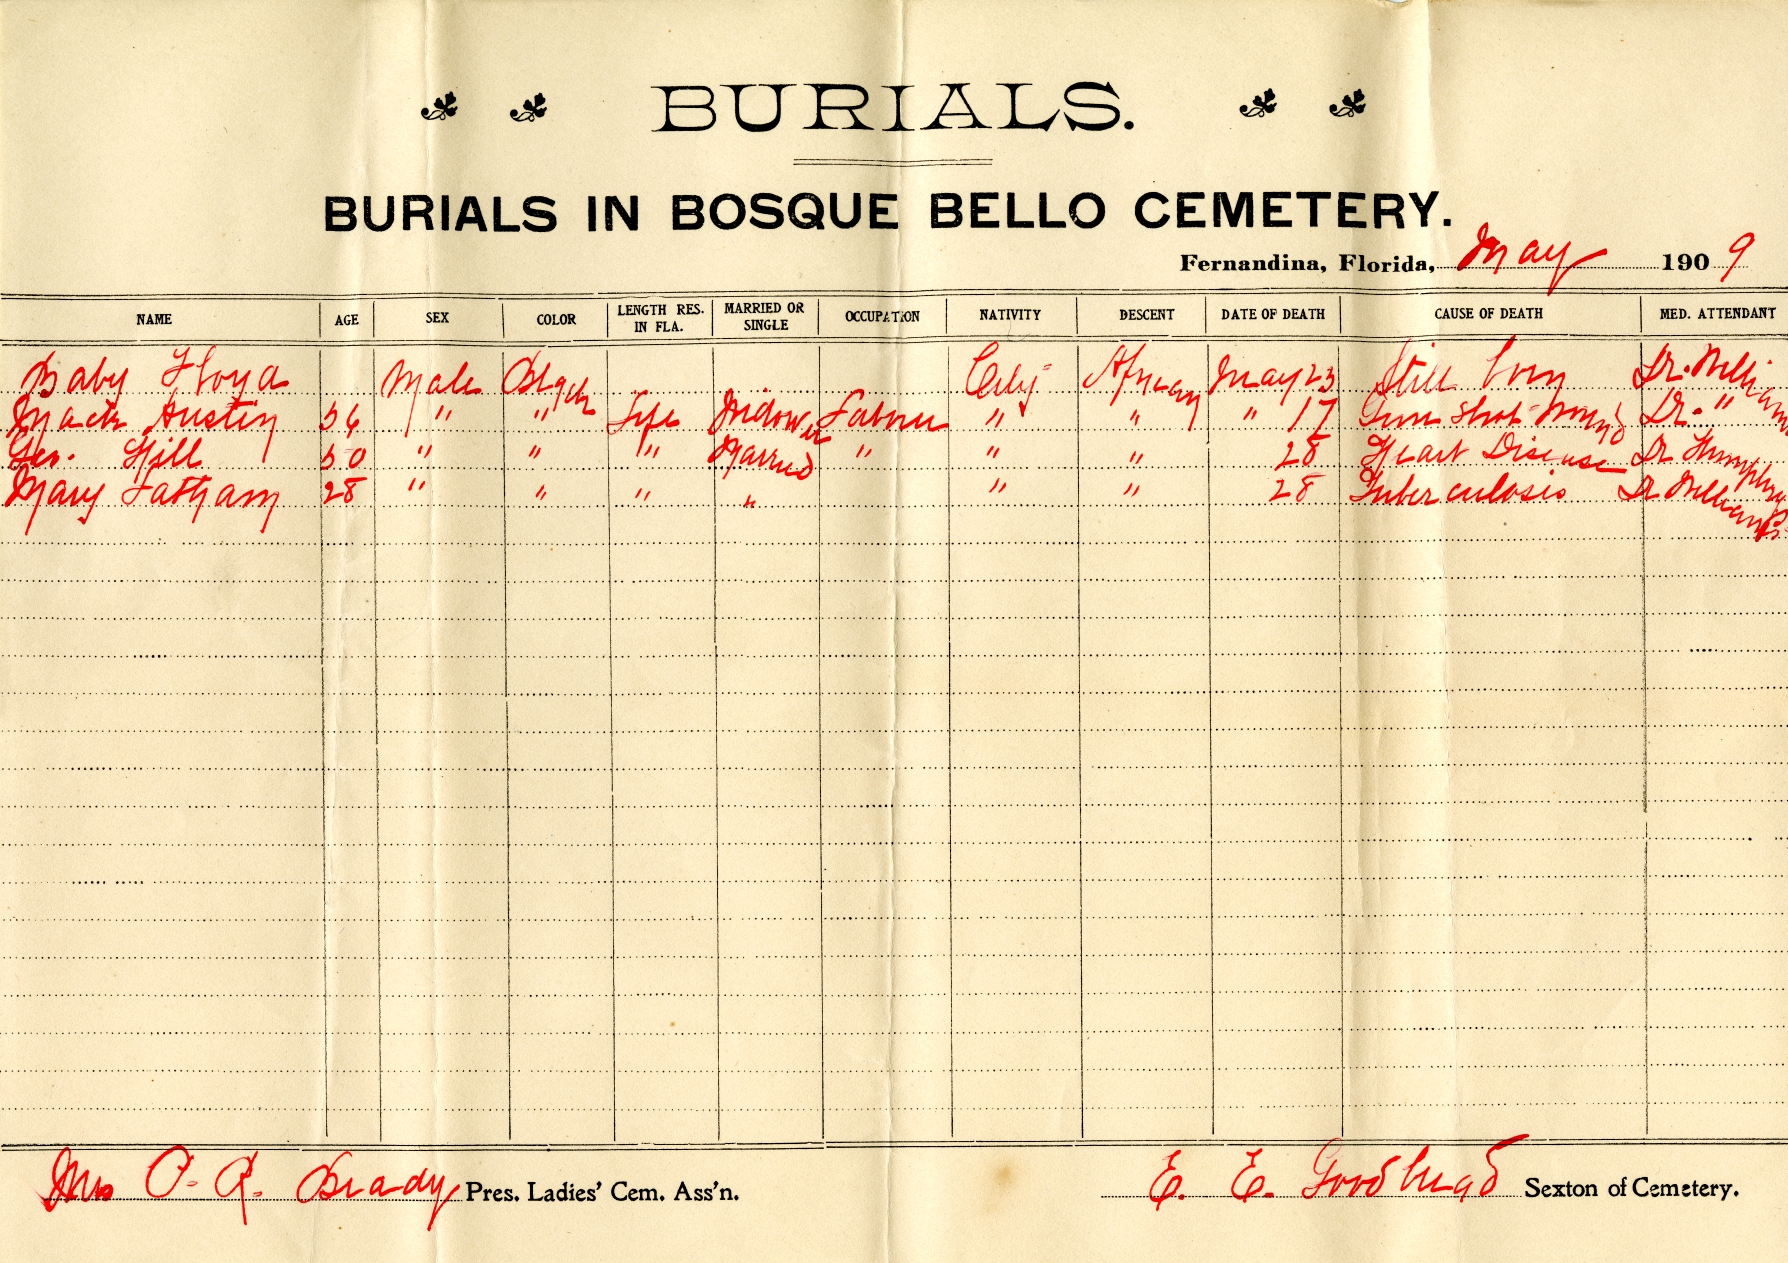 BURIALS.
BURIALS IN BOSQUE BELLO CEMETERY.
Fernandina, Florida, May 1909
NAME AGE SEX COLOR LENGTH RES. IN FLA. MARRIED OR SINGLE OCCUPATION NATIVITY DESCENT DATE OF DEATH CAUSE OF DEATH MED. ATTENDANT
Baby Floyd Male Black City African May 23 Still born Dr. Williams
Mack Austin 56 " " Life Widower Laborer " " " 17 Gun shot wound Dr. "
Geo. Hill 50 " " " Married " " " 28 Heart Disease Dr Humphreys
Mary Latham 28 " " " " " " 28 Tuberculosis Dr Williams
Mrs O. R. Brady Pres. Ladies' Cem. Ass'n.
E. E. Goodbread Sexton of Cemetery.